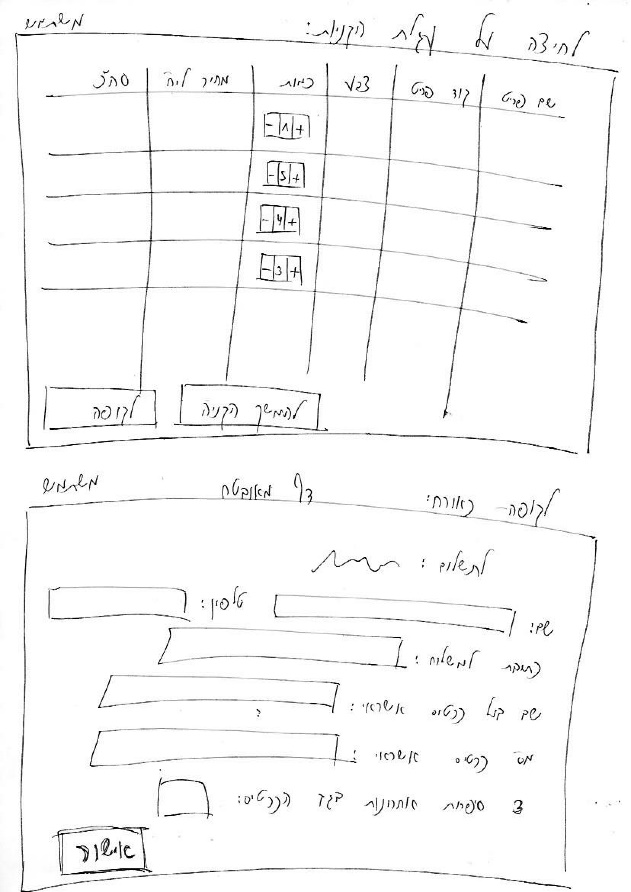 משתמש
לחיצה על עגלת הקניות:
שם פריט קוד פריט צבע כמות מחיר ליח' סה"כ
- 1 +
- 5 +
- 4 +
- 3 +
להמשך הקניה לקופה
משתמש
לקופה - כאורח: דף מאובטח
לתשלום:
שם: טלפון:
כתובת למשלוח:
שם בעל כרטיס אשראי:
?
מס' כרטיס אשראי:
3 ספרות אחרונות בגב הכרטיס:
אישור